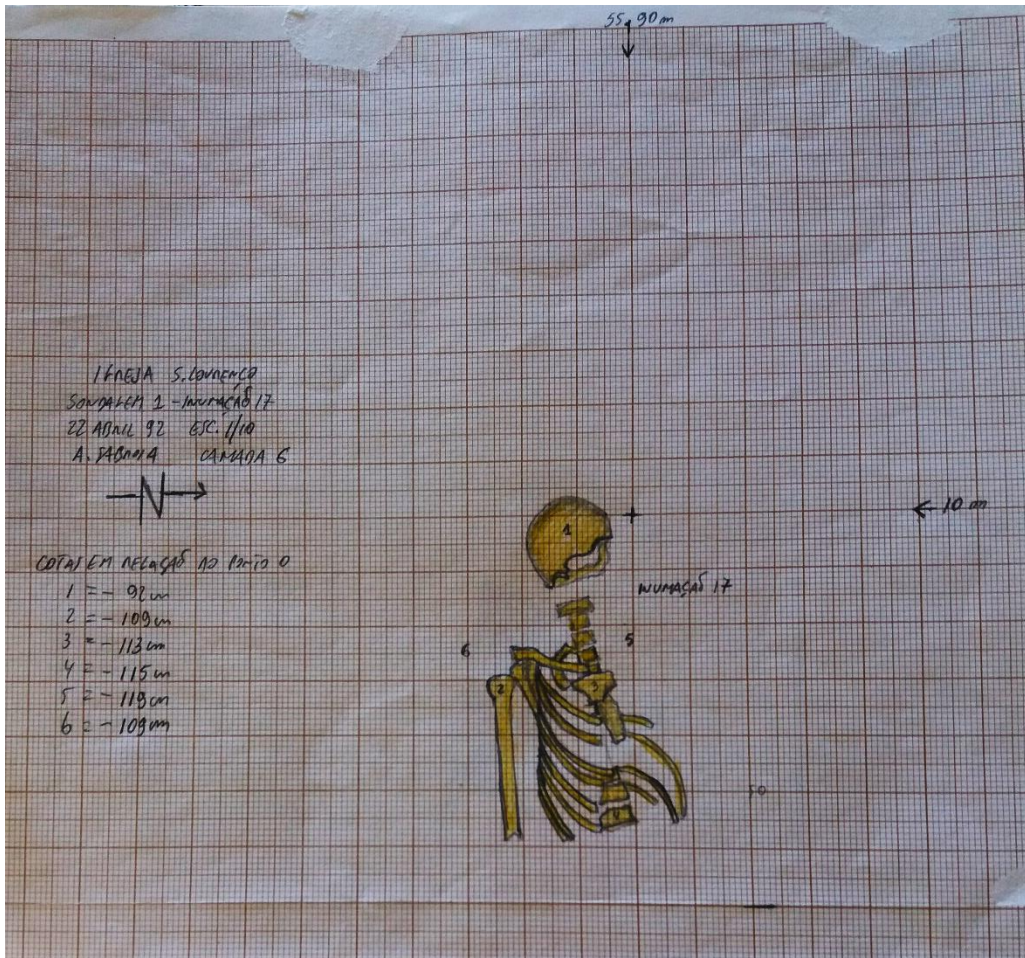 55,90 m
IGREJA S. LOURENÇO
SONDAGEM 1 - INUMAÇÃO 17
22 ABRIL 92 ESC. 1/10
A. SABROSA CAMADA 6
N
← 10 m
COTAS EM RELAÇÃO AO PONTO 0
1 = - 92 cm
2 = - 109 cm
3 = - 113 cm
4 = - 115 cm
5 = - 119 cm
6 = - 109 cm
1
INUMAÇÃO 17
6
5
2
3
4
50